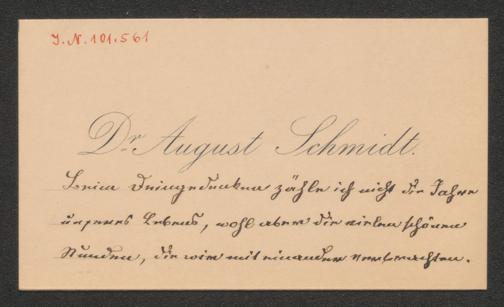 J.N. 101.561
Dr. August Schmidt.
Beim Deingedenken zähle ich nicht die Jahre
unseres Lebens, wohl aber die vielen schönen
Stunden, die wir mit einander verbrachten.